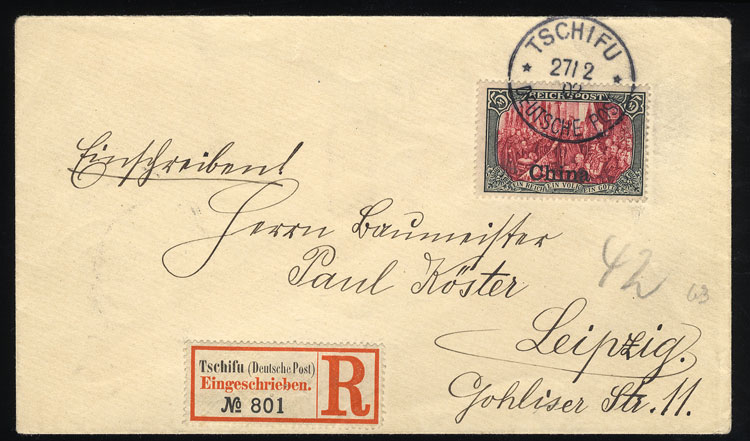 TSCHIFU
27/2
02
DEUTSCHE POST
REICHSPOST
5 5
China
EIN REICH EIN VOLK EIN GOTT
Einschreiben!
Herrn Baumeister
Paul Köster
Leipzig.
Gohliser Str. 11.
42
63
Tschifu (Deutsche Post)
Eingeschrieben.
№ 801
R